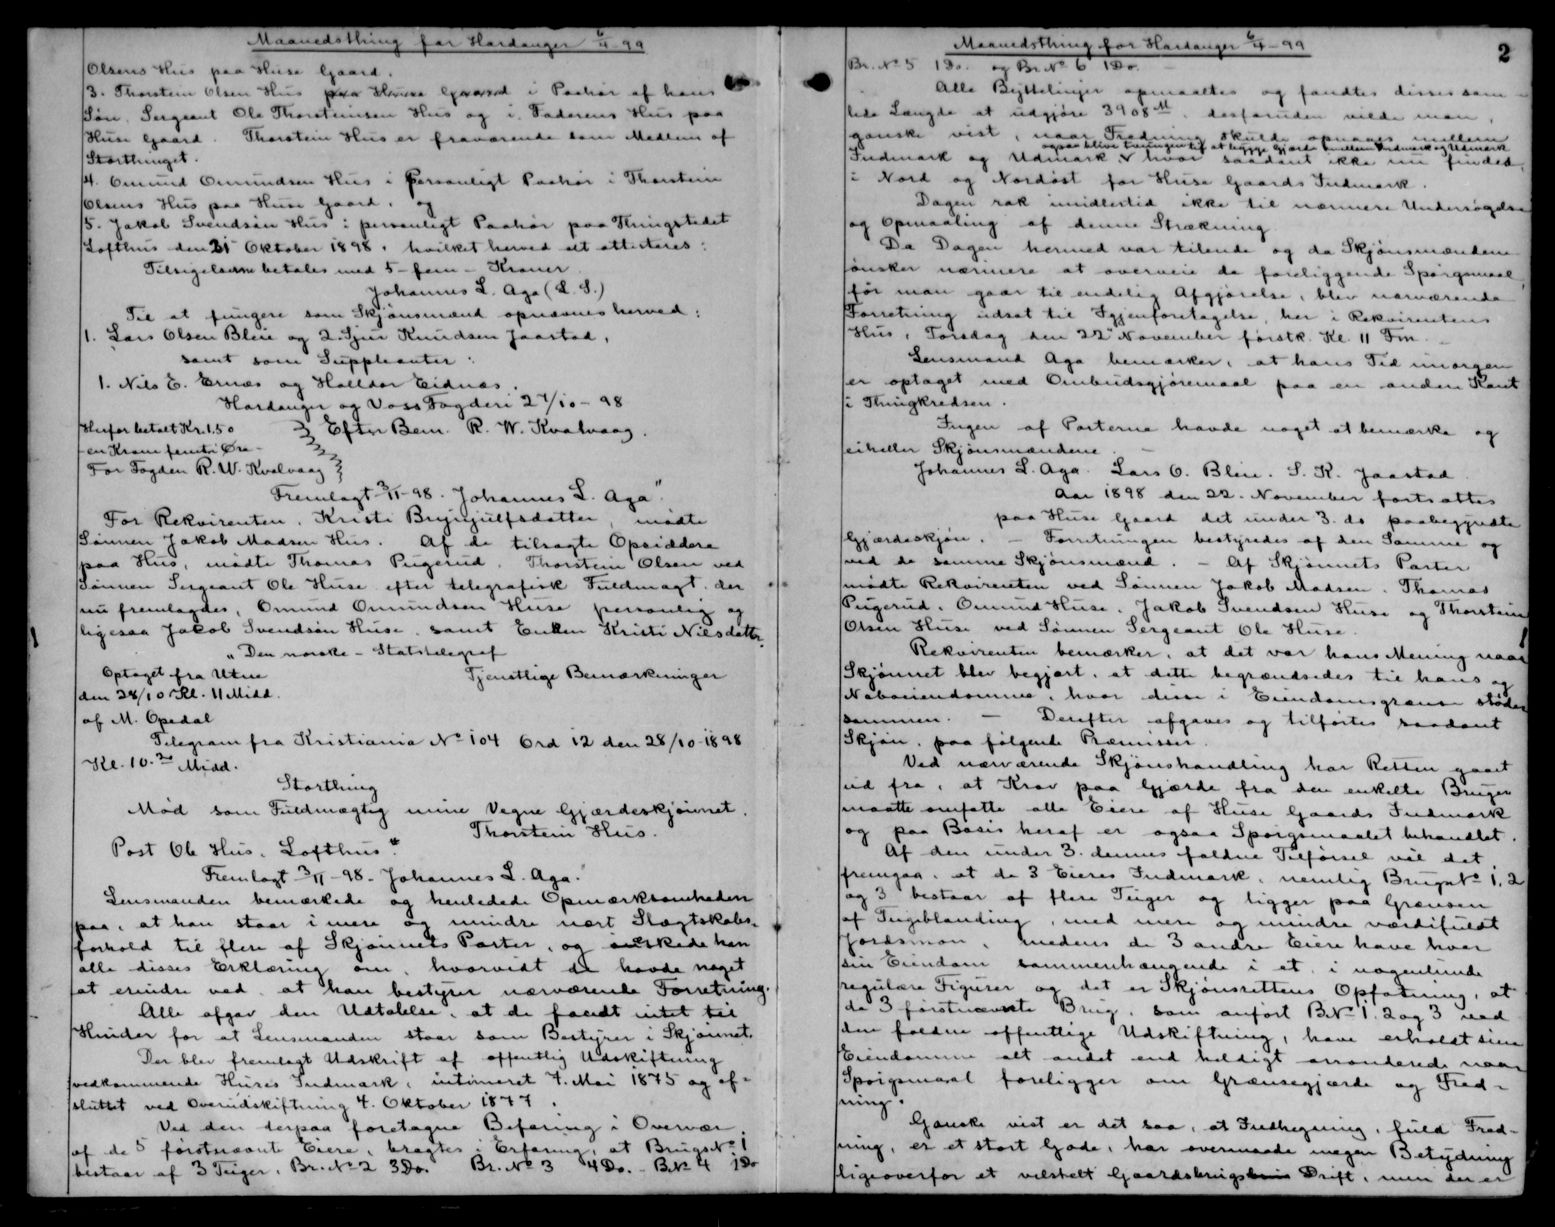 Maanedsthing for Hardanger 6/4-99
Olsens Hus paa Huse Gaard.
3. Thorstein Olsen Hus paa Huse Gaard i Paahør af hans
Søn, Sergeant Ole Thorsteinsen Hus og i Faderens Hus paa
Huse Gaard. Thorstein Hus er fraværende som Medlem af
Storthinget.
4. Omund Omundsen Hus i Personligt Paahør i Thorstein
Olsens Hus paa Huse Gaard, og
5. Jakob Svendsøn Hus i personligt Paahør paa Thingstedet
Lofthus den 31 Oktober 1898, hvilket herved alt attesteres:
Tilsigelserne betales med 5 - fem - Kroner.
Johannes L. Aga (L. S.)
Til at fungere som Skjønsmænd opnævnes herved:
1. Lars Olsen Bleie og 2. Sjur Knudsen Jaastad,
samt som Suppleanter:
1. Nils E. Ernæs og Halldor Eidnæs.
Hardanger og Voss Fogderi 27/10-98
Herfor betalt Kr. 1.50
Efter Bem. R. W. Kvalvaag.
- en Krone femti Øre -
For Fogden R. W. Kvalvaag
Fremlagt 3/11-98. Johannes L. Aga".
For Rekvirenten, Kristi Brynjulfsdatter, mødte
Sønnen Jakob Madsen Hus. Af de tilsagte Opsiddere
paa Hus, mødte Thomas Pugerud, Thorstein Olsen ved
Sønnen Sergeant Ole Huse efter telegrafisk Fuldmagt, der
nu fremlagdes, Omund Omundsen Huse personlig og
ligesaa Jakob Svendsøn Huse, samt Enken Kristi Nilsdatter.
"Den norske - Statstelegraf
Optaget fra Utne
Tjenstlige Bemærkninger
den 28/10 Kl. 11 Midd.
af M. Opedal
Telegram fra Kristiania No 104 Ord 12 den 28/10-1898
Kl. 10.20 Midd.
Storthing
Mød som Fuldmægtig mine Vegne Gjærdeskjønnet.
Thorstein Hus.
Post Ole Hus, Lofthus".
Fremlagt 3/11-98. Johannes L. Aga.
Lensmanden bemærkede og henledede Opmærksomheden
paa, at han staar i mere og mindre nært Slægtskabs-
forhold til flere af Skjønnets Parter, og ønskede han
alle disses Erklæring om, hvorvidt de havde noget
at erindre ved, at han bestyrer nærværende Forretning.
Alle afgav den Udtalelse, at de fandt intet til
Hinder for at Lensmanden staar som Bestyrer i Skjønnet.
Der blev fremlagt Udskrift af offentlig Udskiftning
vedkommende Huses Indmark, intimeret 7. Mai 1875 og af-
sluttet ved Overudskiftning 4. Oktober 1877.
Ved den derpaa foretagne Befaring i Overvær
af de 5 førstnævnte Eiere, bragtes i Erfaring, at Brugs No 1
bestaar af 3 Teiger, Br. No 2 3 Do. Br. No 3 4 Do. - B.No 4 1 Do
Maanedsthing for Hardanger 6/4-99
2
Br. No 5 1 Do. og Br. No 6 1 Do. -
Alle Byttelinjer opmaaltes og fandtes disses sam-
lede Længde at udgjøre 3908 M, desforuden vilde man,
ganske vist, naar Fredning skulde opnaaes mellem
ogsaa blive tvungen til at bygge Gjærde mellem Indmark og Udmark
Indmark og Udmark hvor saadant ikke nu findes,
i Nord og Nordøst for Huse Gaards Indmark.
Dagen rak imidlertid ikke til nærmere Undersøgelse
og Opmaaling af denne Strækning.
Da Dagen hermed var tilende og da Skjønsmændene
ønsker nærmere at overveie de foreliggende Spørgsmaal,
før man gaar til endelig Afgjørelse, blev nærværende
Forretning udsat til Igjenforetagelse, her i Rekvirentens
Hus, Torsdag den 22 November førstk. Kl. 11 Fm. -
Lensmand Aga bemærker, at hans Tid imorgen
er optaget med Ombudsgjøremaal paa en anden Kant
i Thingkredsen.
Ingen af Parterne havde noget at bemærke og
eiheller Skjønsmændene. -
Johannes L. Aga. Lars O. Bleie. S. K. Jaastad.
Aar 1898 den 22. November fortsattes
paa Huse Gaard det under 3. ds paabegyndte
Gjærdeskjøn. - Forretningen bestyredes af den Samme og
ved de samme Skjønsmænd. - Af Skjønnets Parter
mødte Rekvirenten ved Sønnen Jakob Madsen, Thomas
Pugerud, Omund Huse, Jakob Svendsen Huse og Thorstein
Olsen Huse ved Sønnen Sergeant Ole Huse.
Rekvirenten bemærker, at det var hans Mening naar
Skjønnet blev begjært, at dette begrændsedes til hans og
Naboeiendomme, hvor disse i Eiendomsgrænse støder
sammen. - Derefter afgaves og tilførtes saadant
Skjøn, paa følgende Præmisser.
Ved nærværende Skjønshandling har Retten gaaet
ud fra, at Krav paa Gjærde fra den enkelte Bruger
maatte omfatte alle Eiere af Huse Gaards Indmark
og paa Basis heraf er ogsaa Spørgsmaalet behandlet.
Af den under 3. dennes faldne Tilførsel vil det
fremgaa, at de 3 Eieres Indmark, nemlig Brugs No 1, 2
og 3 bestaar af flere Teiger og ligger paa Grænsen
af Teigblanding, med mere og mindre værdifuldt
Jordsmon, medens de 3 andre Eiere have hver
sin Eiendom sammenhængende i et, i nogenlunde
regulære Figurer og det er Skjønsrettens Opfatning, at
de 3 førstnævnte Brug, som anført B.No 1. 2 og 3 ved
den faldne offentlige Udskiftning, have erholdt sine
Eiendomme alt andet end heldigt arronderede naar
Spørgsmaal foreligger om Grænsegjærde og Fred-
ning.
Ganske vist er det saa, at Indhegning, fuld Fred-
ning, er et stort Gode, har overmaade megen Betydning
ligeoverfor et velstelt Gaardsbrugs Drift, men der er